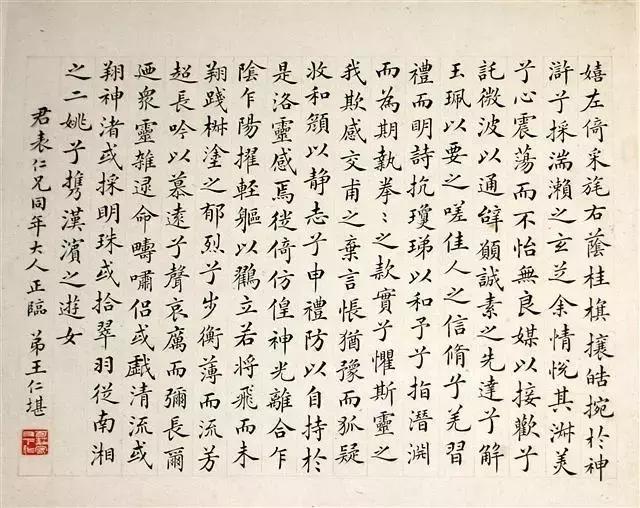 嬉左倚采旄右蔭桂旗攘皓捥於神
滸兮採湍瀨之玄芝余情悅其淑美
兮心震蕩而不怡無良媒以接歡兮
託微波以通辭願誠素之先達兮解
玉珮以要之嗟佳人之信脩兮羌習
禮而明詩抗瓊珶以和予兮指潛淵
而為期執拳〻之款實兮懼斯靈之
我欺感交甫之棄言悵猶豫而狐疑
收和顏以静志兮申禮防以自持於
是洛靈感焉徙倚仿偟神光離合乍
陰乍陽擢輕軀以鸖立若將飛而未
翔踐椒塗之郁烈兮步衡薄而流芳
超長吟以慕遠兮聲哀厲而彌長爾
迺眾靈雜遝命疇嘯侶或戲清流或
翔神渚或採明珠或拾翠羽從南湘
之二姚兮攜漢濱之遊女
君表仁兄同年大人正臨 弟王仁堪